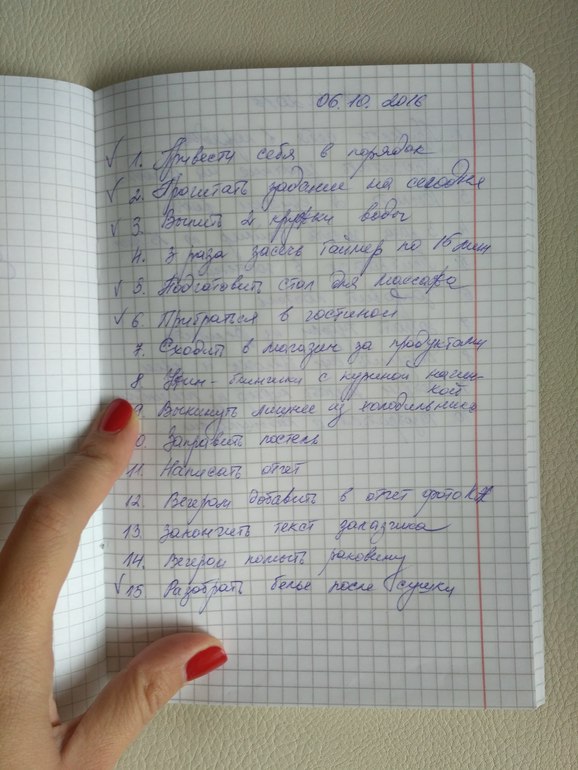 06.10.2016
✓ 1. Привести себя в порядок
✓ 2. Прочитать задание на сегодня
✓ 3. Выпить 2 кружки воды
4. 3 раза засечь таймер по 15 мин
✓ 5. Подготовить стол для
✓ 6. Прибраться в гостиной
7. Сходить в магазин за продуктами
8. Ужин - блинчики с куриной начин-
кой
9. Выкинуть лишнее из холодильника
0. Заправить постель
11. Написать отчет
12. Вечером добавить в отчет фото
13. Закончить текст заказчика
14. Вечером помыть раковину
✓ 15 Разобрать белье после сушки